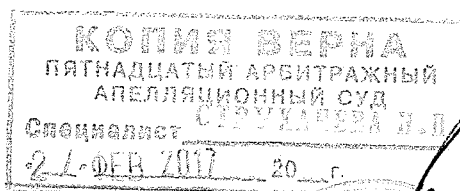 КОПИЯ ВЕРНА
ПЯТНАДЦАТЫЙ АРБИТРАЖНЫЙ
АПЕЛЛЯЦИОННЫЙ СУД
Специалист
ФЕВ 2017 20 г.